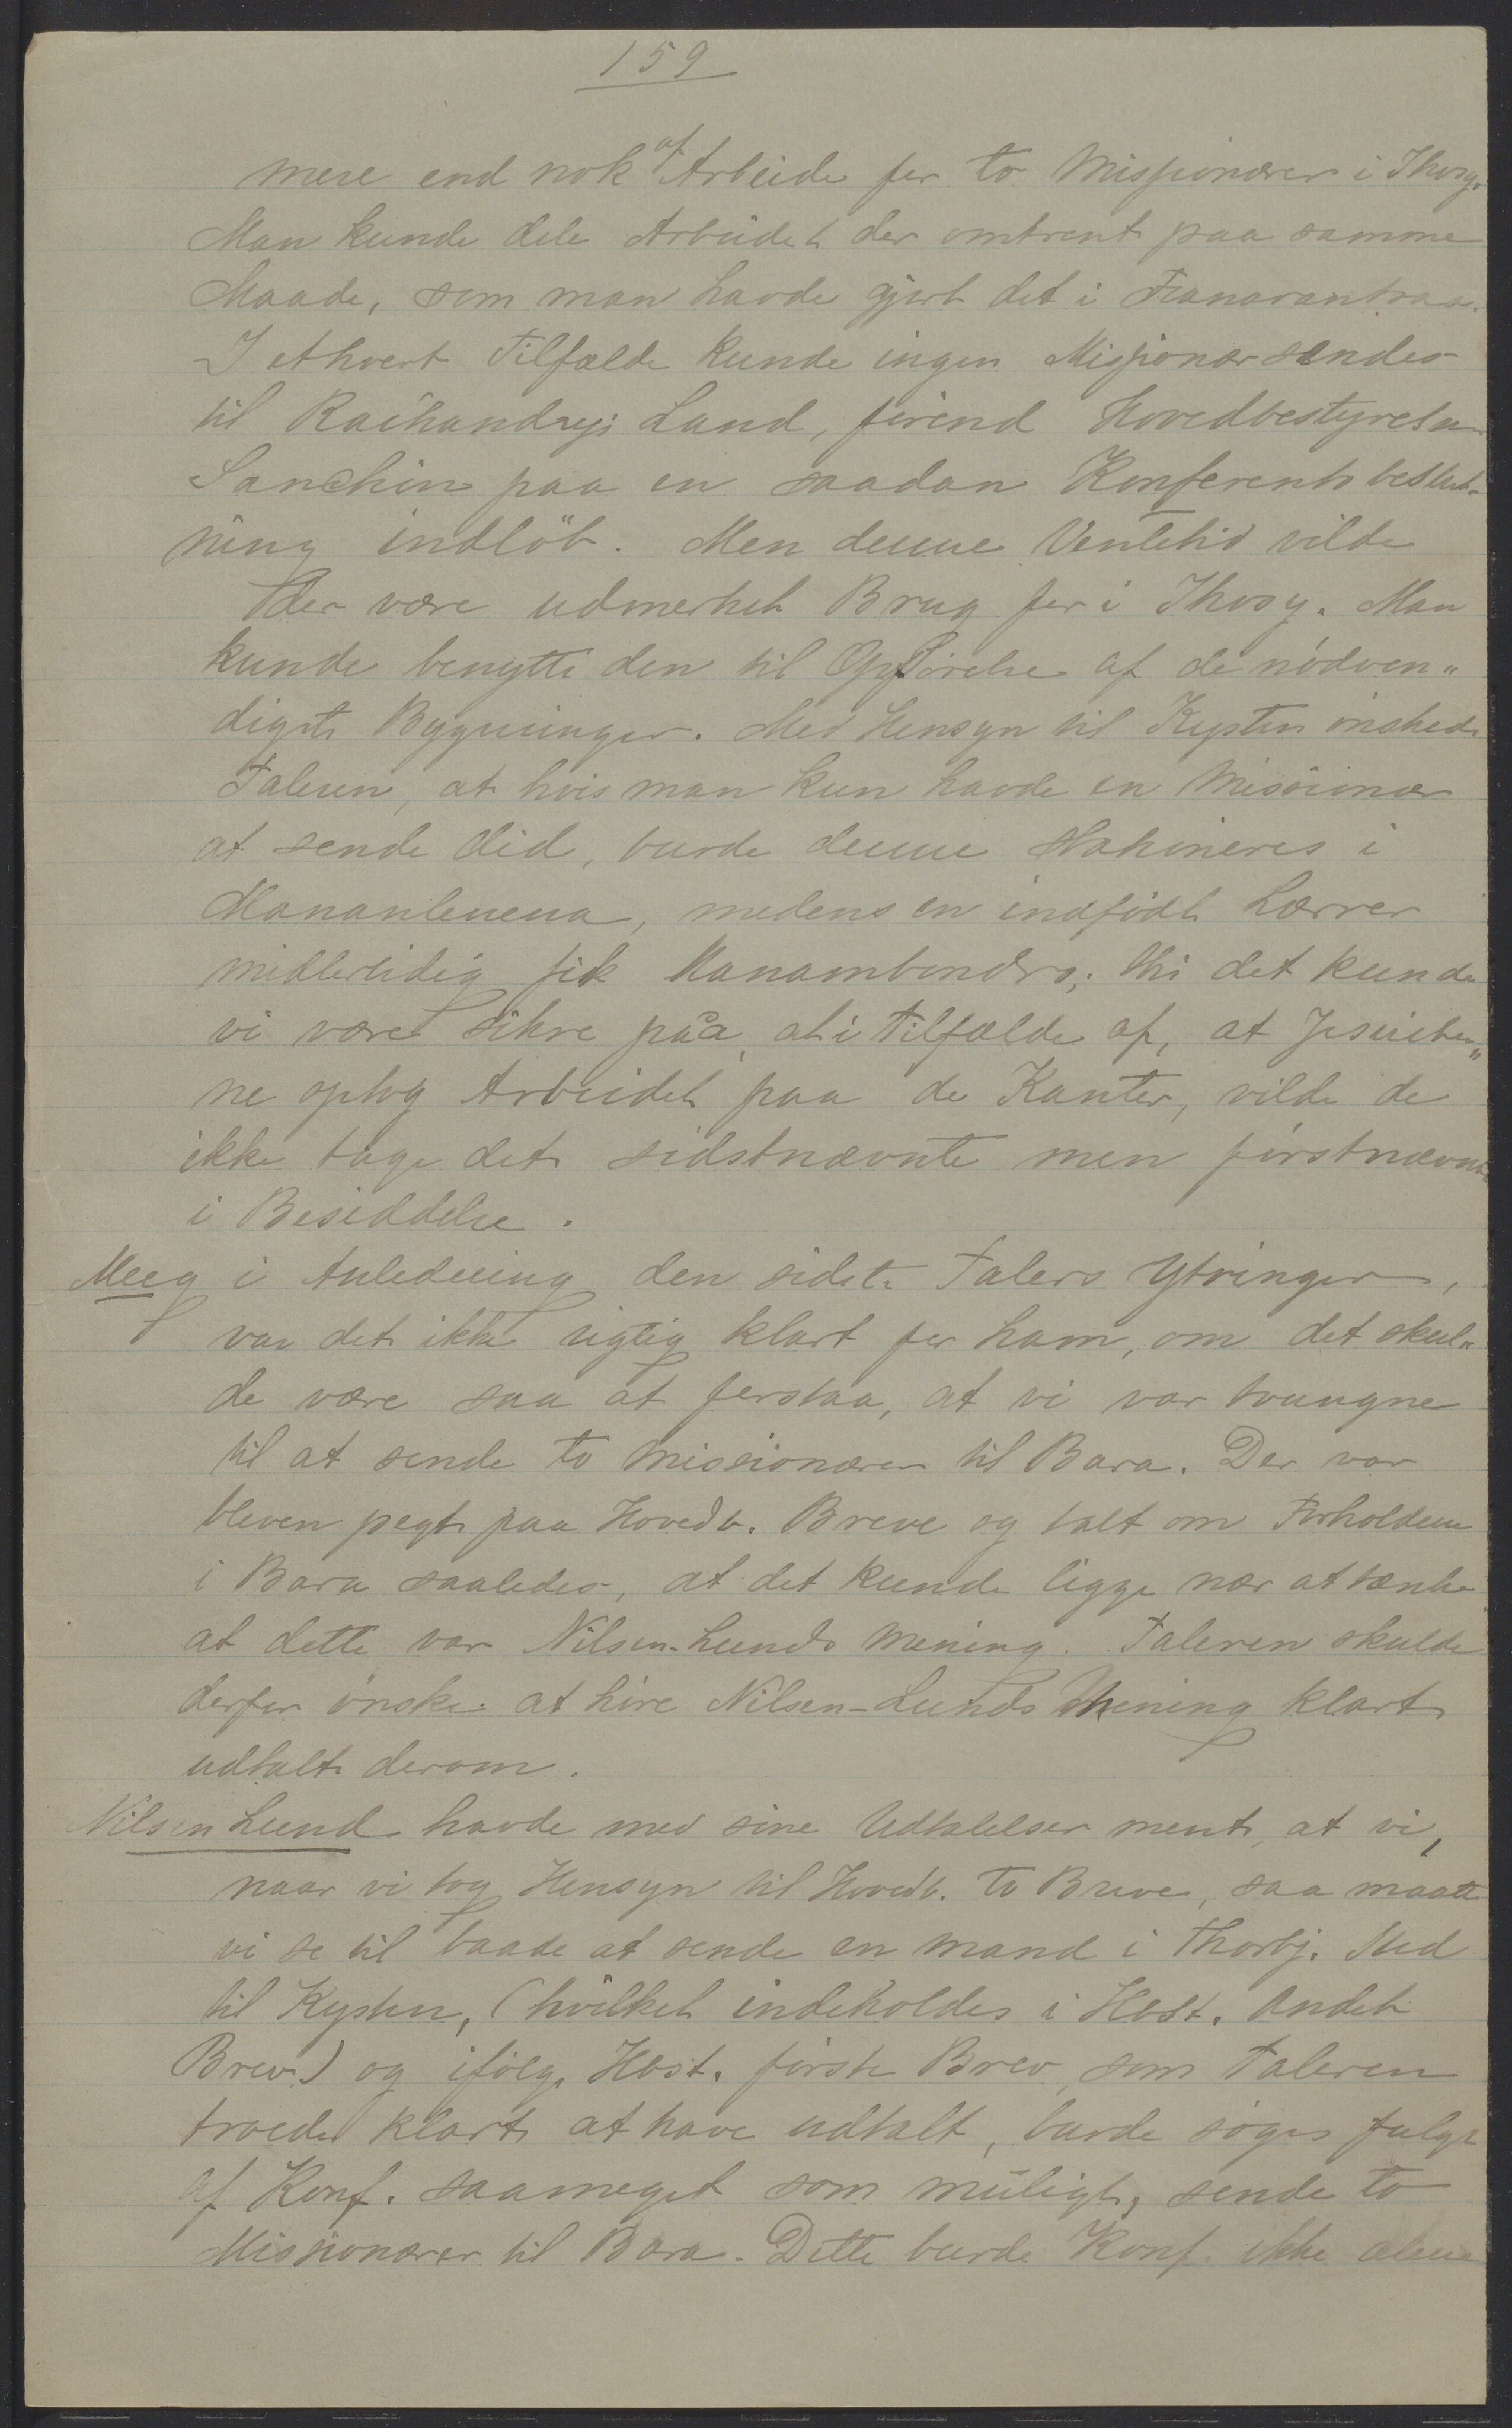 159
mere end nok af Arbeide for to Missionærer i Ihosy.
Man kunde dele Arbeidet der omtrent paa samme
Maade, som man havde gjort det i Fianarantsoa.
I ethvert Tilfælde kunde ingen Missionær sendes
til Raihandrys Land, førend Hovedbestyrelsens
Sanction paa en saadan Konferentsbeslut-
ning indløb. Men denne Ventetid vilde
der være udmerket Brug for i Ihosy. Man
kunde benytte den til Opførelse af de nødven„
digste Bygninger. Med Hensyn til Kysten ønskede
Taleren, at hvis man kun havde en Missionær
at sende did, burde denne stationeres i
Manantenena, medens en indfødt Lærer
midlertidig fik Manambondro; thi det kunde
vi være sikre paa, at i Tilfælde af, at Jesuiter„
ne optog Arbeidet paa de Kanter, vilde de
ikke tage det sidstnævnte men førstnævnte
i Besiddelse.
Meeg i Anledning den sidste Talers Ytringer,
var det ikke rigtig klart for ham, om det skul„
de være saa at forstaa, at vi var tvungne
til at sende to Missionærer til Bara. Der var
bleven pegt paa Hovedb. Breve og talt om Forholdene
i Bara saaledes, at det kunde ligge nær at tænke
at dette var Nilsen-Lunds Mening. Taleren skulde
derfor ønske at høre Nilsen-Lunds Mening klart
udtalt derom.
Nilsen Lund havde med sine Udtalelser ment, at vi,
naar vi tog Hensyn til Hovedb. to Breve, saa maatte
vi se til baade at sende en Mand i Thorbj. Sted
til Kysten, (hvilket indeholdes i Hbst. Andet
Brev) og ifølge Hbst. første Brev, som Taleren
troede klart at have udtalt, burde søges fulgt
af Konf. saameget som muligt, sende to
Missionærer til Bara. Dette burde Konf. ikke alene